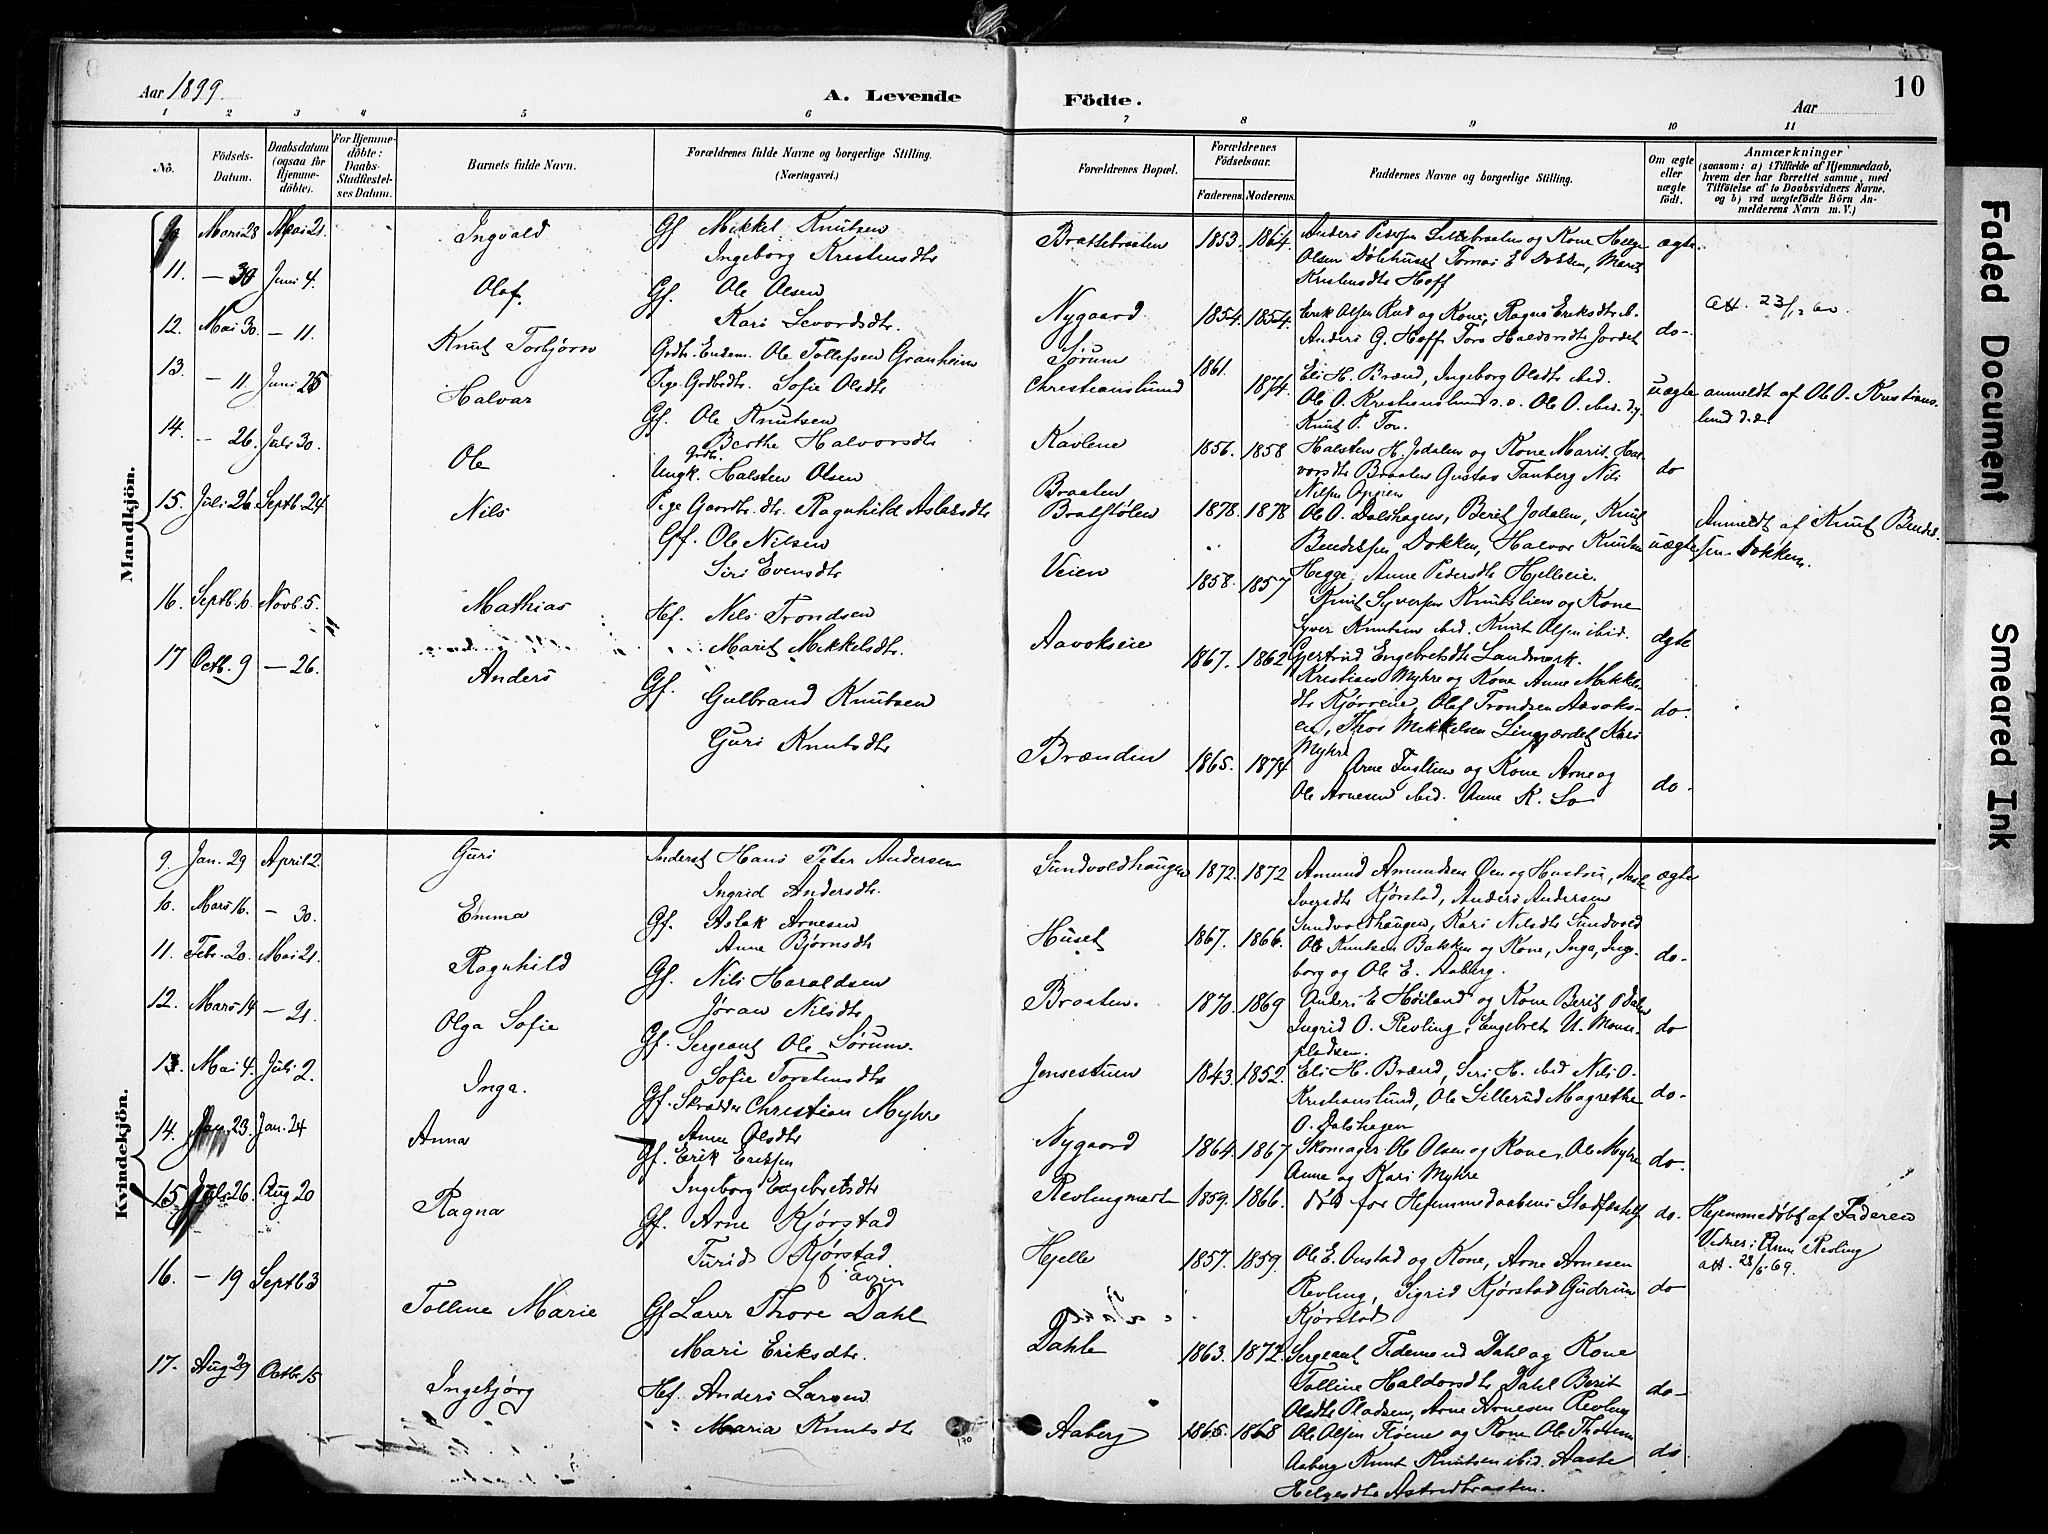 Aar 1899.
A. Levende
Födte.
Aar
10
1 2 3 4 5 6 7 8 9 10 11
No.
Födsels-
Datum.
Daabsdatum
(ogsaa for
Hjemme-
döbte).
For Hjemme-
döbte:
Daabs-
Stadfæstel-
ses Datum.
Barnets fulde Navn.
Forældrenes fulde Navne og borgerlige Stilling.
(Næringsvei.)
Forældrenes Bopæl.
Forældrenes
Födselsaar.
Faderens. Moderens.
Faddernes Navne og borgerlige Stilling.
Om ægte
eller
uægte
födt.
Anmærkninger
(saasom: a) i Tilfælde af Hjemmedaab,
hvem der har forrettet samme, med
Tilföielse af to Daabsvidners Navne,
og b) ved uægtefödte Börn An-
melderens Navn m. V.)
Mandkjön.
Mars 28 Mai 21. Ingvald Gf Mikkel Knutsen
Ingeborg Kristensdtr
Brattebraaten 1853. 1864. Anders Pedersen Lillebraaten og Kone Helge ægte.
Olsen Dölehuset Tomas E Dokken, Marit
Kristensdtr Hoff
11. — 30 Juni 4. Olaf. Gf. Ole Olsen
Kari Sevordsdtr.
Nygaard 1854. 1854. Erik Olsen Rud og Kone, Ragna Eriksdtr ib.
Anders G. Hoff Tora Haldorsdtr Jordet do-
Att. 23/12 60.
12. Mai 30. — 11. Knut Torbjörn Grdbr. Enkem. Ole Tollefsen Granheim
Pige Grdbrdtr. Sofie Olsdtr
Sörum
Christianslund
1861.
1874.
Eli H. Brænd, Ingeborg Olsdtr ibid.
Ole O. Kristianslund s.s. Ole O. ibid. og
Knut P. Tov.
uægte anmeldt af Ole O. Kristians-
lund d.e.
13. — 11. Juni 25 Halvar Gf. Ole Knutsen
Berthe Halvorsdtr
Kavlene 1856. 1858 Halsten H. Jodalen og Kone Marit Hal-
vorsdtr Braaten Gustav Tanberg Nils
Nilsen Oppen
do
14. — 26. Juli 30. Ole Ungk. Halsten Olsen
Pige Gaardbr. dtr. Ragnhild Aslaksdtr
Braaten
Bratstölen
1878. 1878 Ole O. Dalshagen, Berit Jodalen, Knut
Bendiksen Dokken, Halvor Knutsen
Hegge, Anne Pedersdtr Hjelleie.
uægte Anmeldt af Knut Bendik-
sen Dokken.
15. Juli 26 Septb. 24 Nils Gf. Ole Nilsen
Siri Evensdtr
Veien 1858. 1857 Knut Syversen Knutslien og Kone
Syver Knutsen ibid. Knut Olsen ibid.
Gjertrud Engebretsdtr Landmark.
ægte
16. Septb. 6. Novb. 5. Mathias Hf. Nils Trondsen
Marit Mikkelsdtr.
Aavokseie 1867. 1862 Kristians Myhre og Kone Anne Mikkels-
dtr Kjörreie, Olaf Trondsen Aavoks-
eie, Thor Mikkelsen Lingjærdet Kari
Myhre
do.
17 Octb. 9 — 26. Anders Gf. Gulbrand Knutsen
Guri Knutsdtr
Brænden 1865. 1874 Arne Tuslien og Kone Arne og
Ole Arnesen ibid. Anne K. Lo
do.
Kvindekjön.
9 Jan. 29 April 2. Guri Inderst Hans Peter Andersen
Ingrid Andersdtr.
Sundvoldhaugen 1872. 1872 Amund Amundsen Öen og Hustru, Aaste ægte
Iversdtr Kjörstad, Anders Andersen
Sundvoldhaugen, Kari Nilsdtr Sundvold
10. Mars 16. — 30. Emma Gf. Aslak Arnesen
Anne Björnsdtr
Huset 1867. 1866. Ole Knutsen Bakken og Kone, Inga, Inge-
borg og Ole E. Aaberg.
do-
11. Febr. 20. Mai 21. Ragnhild Gf. Nils Haraldsen
Jöran Nilsdtr
Braaten. 1870. 1869 Anders E Höiland og Kone Berit P Dalen
Ingrid O. Revling, Engebret U. Mouse-
pladsen.
do
12. Mars 14. — 21. Olga Sofie Gf. Sergeant Ole Sörum.
Sofie Torstensdtr
Jensestuen 1843. 1852. Eli H. Brænd, Siri H. ibid Nils O.
Kristianslund, Ole Sillerud Magrethe
O. Dalshagen
do-
13. Mai 4. Juli 2. Inga. Gf. Skrædder Christian Myhre
Anne Olsdtr
Nygaard 1864. 1867 Skomager Ole Olsen og Kone, Ole Myhre
Anne og Kari Myhre
do.
14. 23. Jan. 24 Anna Gf. Erik Eriksen
Ingeborg Engebretsdtr
Revlingmarken 1859. 1866. död for Hjemmedaabens Stadfæstelse do. Hjemmedöbt af Faderen
Vidner: Anne Revling
att. 28/6 69.
15. Juli 26. Aug 20 Ragna Gf. Arne Kjörstad
Turid Kjörstad
Hjelle 1857. 1859. Ole E. Onstad og Kone, Arne Arnesen
Revling, Sigrid Kjörstad Gudrun
Kjörstad
do
16. — 19 Septb 3 Tolline Marie Gf Lærer Thore Dahl
Mari Eriksdtr.
Dahle 1863. 1872. Sergeant Tidemand Dahl og Kone
Tolline Haldorsdtr Dahl Berit
Olsdtr Pladsen, Arne Arnesen Revling
do-
17. Aug 29 Octb. 15 Ingebjörg Hf. Anders Larsen
Maria Knutsdtr
Aaberg 1865. 1868 Ole Olsen Flöene og Kone Ole Thomson
Aaberg Knut Knutsen ibid. Aaste
Helgesdtr Astridbraaten.
do.
170
Faded Document
Smeared Ink